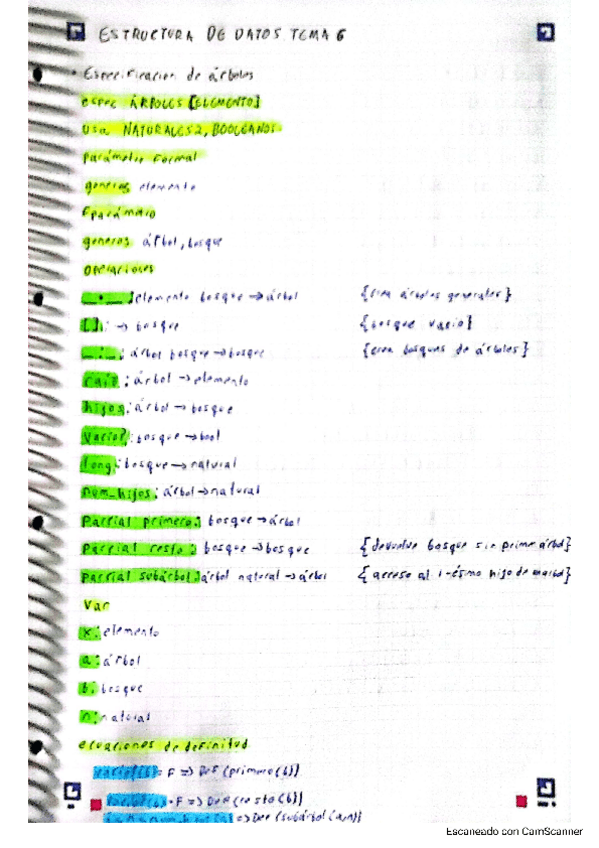 ESTRUCTURA DE DATOS TEMA 6
· Especificacion de árboles
espec ÁRBOLES [ELEMENTO]
usa NATURALES2, BOOLEANOS
parámetro formal
generos elemento
fparámetro
generos árbol, bosque
operaciones
_·_: elemento bosque → árbol {crea árboles generales}
[]: → bosque {bosque vacio}
_:_: árbol bosque → bosque {crea bosques de árboles}
raiz: árbol → elemento
hijos: árbol → bosque
vacio?: bosque → bool
long: bosque → natural
num_hijos: árbol → natural
Parcial primero: bosque → árbol
Parcial resto: bosque → bosque {devuelve bosque sin primer árbol}
Parcial subárbol: árbol natural → árbol {acceso al i-ésimo hijo de un árbol}
Var
x: elemento
a: árbol
b: bosque
n: natural
ecuaciones de definitud
vacio?(b) = F => Def (primero(b))
vacio?(b) = F => Def (resto(b))
=> Def (subárbol(a,n))
Escaneado con CamScanner